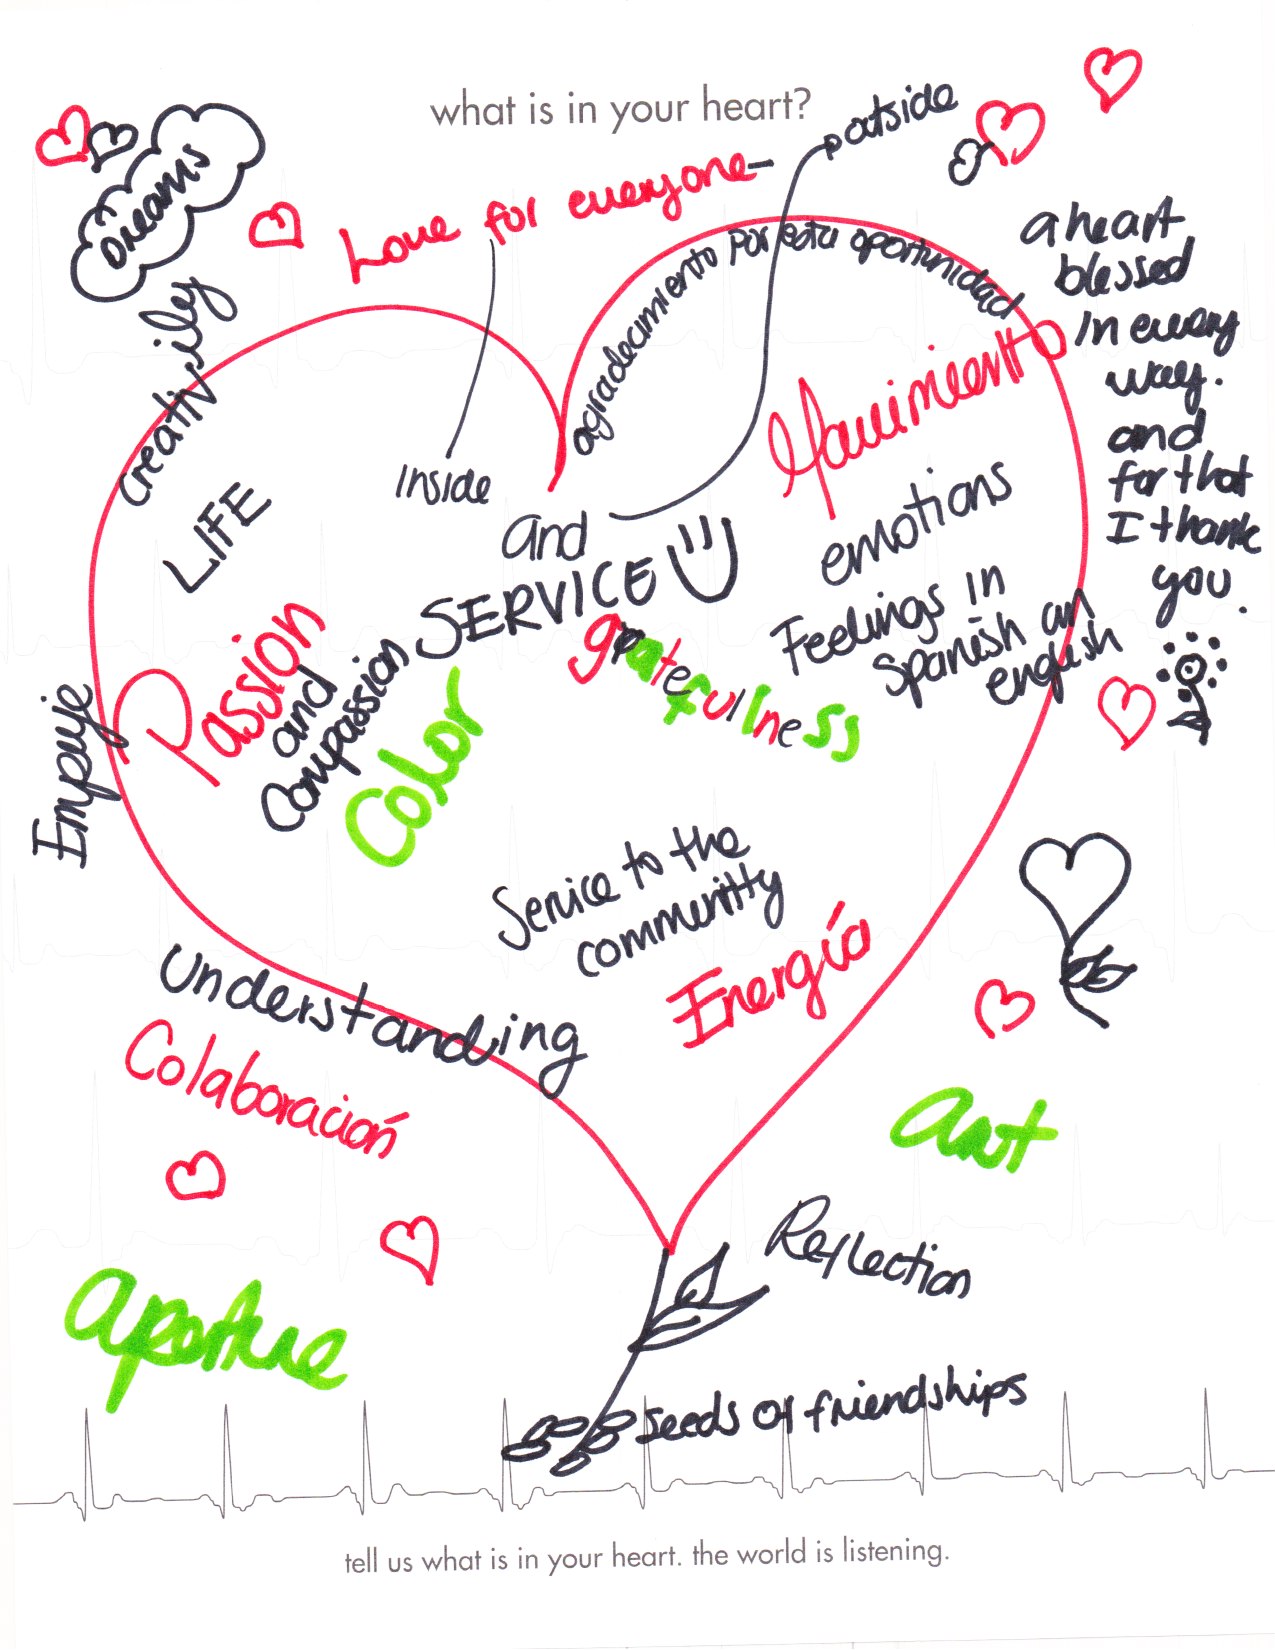 what is in your heart?
outside
Dreams
Love for everyone-
a heart
blessed
in every
way.
and
for that
I thank
you.
creativily
agradecimiento por esta oportunidad
Movimiento
LIFE
inside
and
SERVICE
emotions
Feelings in
Spanish an
english
Passion
and
Compassion
Color
gratefullness
Empuje
Service to the
communitty
Energía
Understanding
Colaboración
Art
Reflection
Seeds of friendships
tell us what is in your heart. the world is listening.